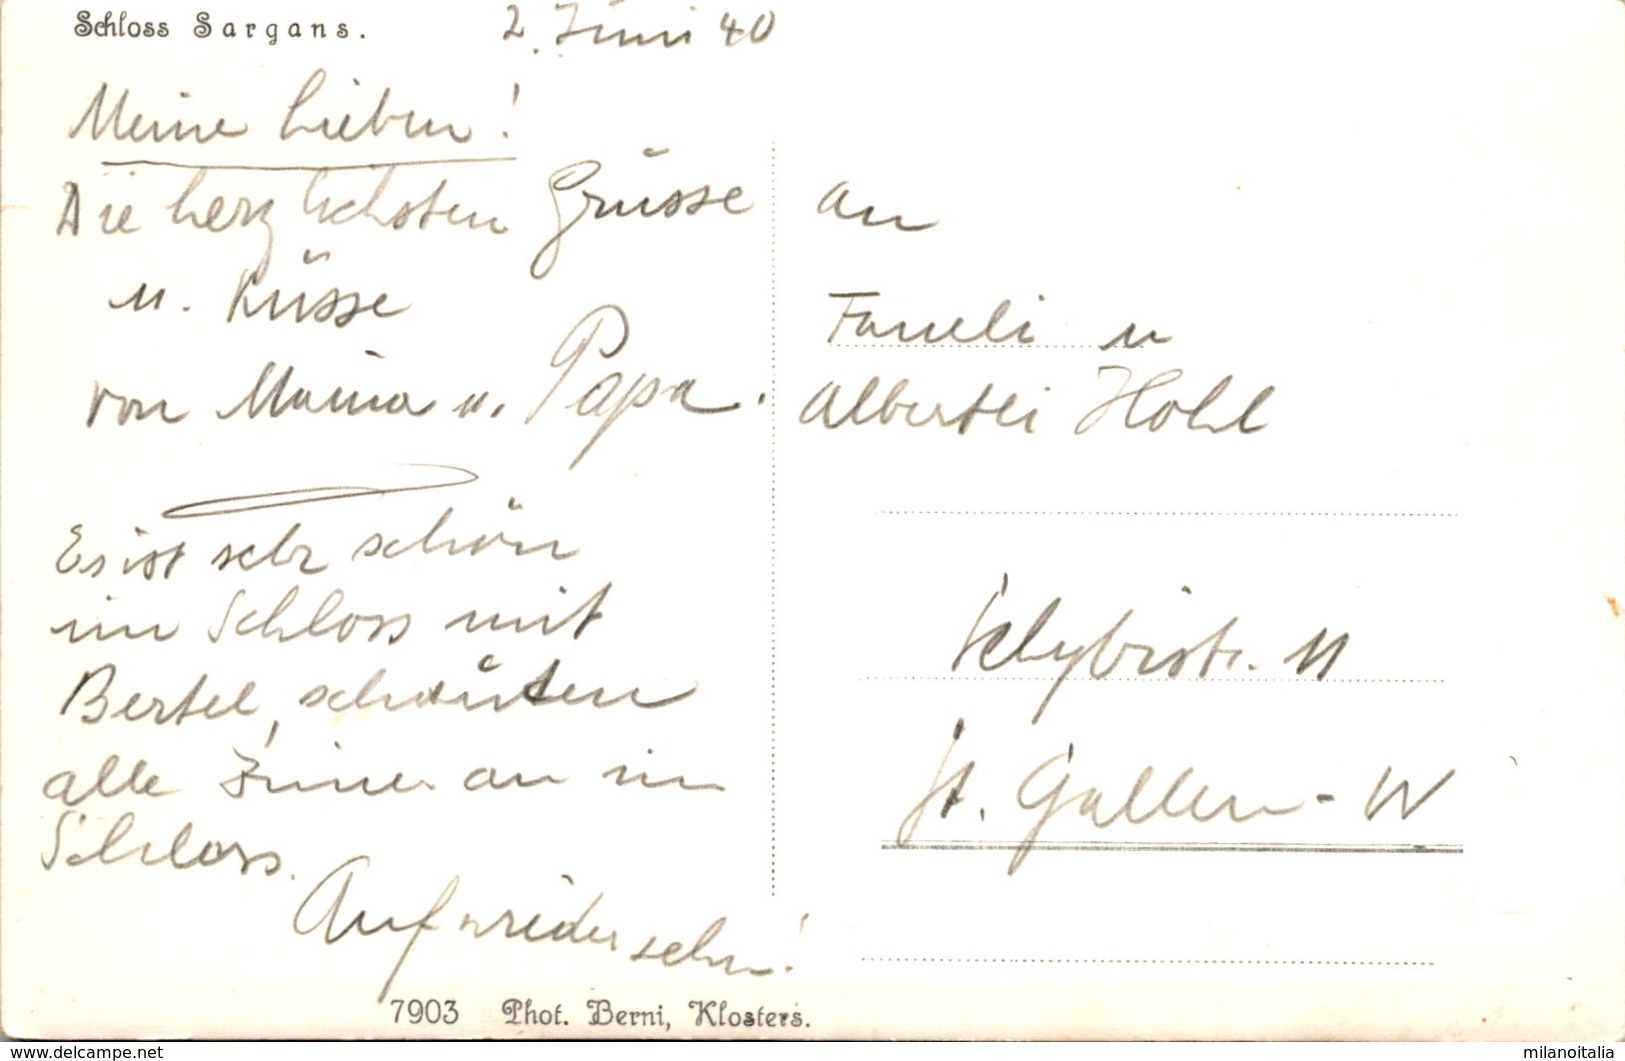 Schloss Sargans.
2. Juni 40
Meine Lieben!
Die herzlichsten Grüsse
u. Küsse
von Mama u. Papa.
Es ist sehr schön
im Schloss mit
Bertel, schauten
alle Zimmer an im
Schloss.
Auf wiedersehn!
an
u
Albertli Hohl
11
St. Gallen - W
7903 Phot. Berni, Klosters.
www.delcampe.net
milanoitalia